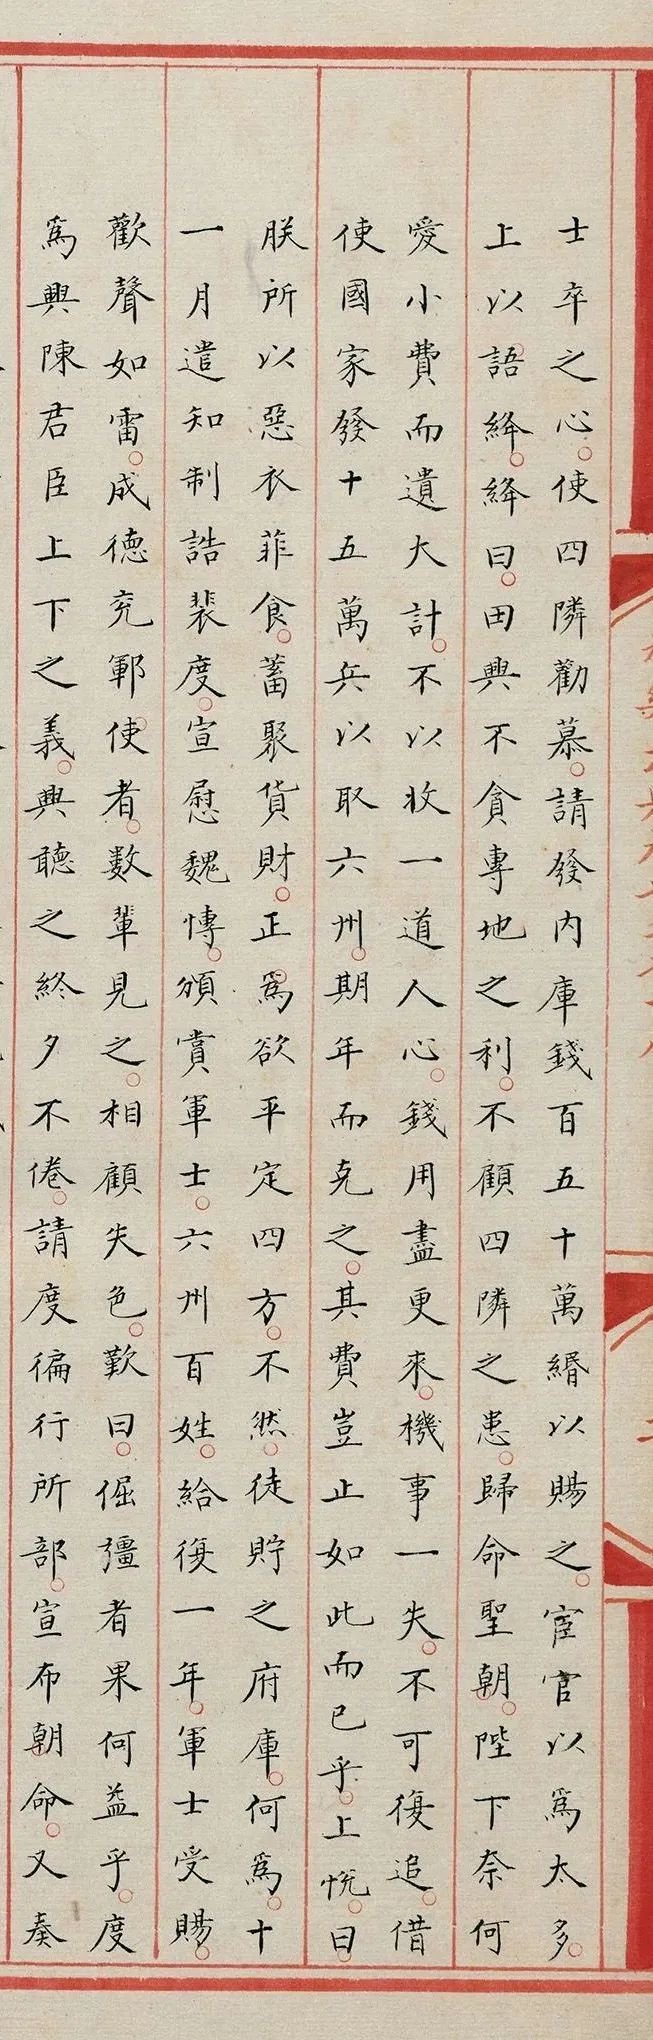 士卒之心。使四隣勸慕。請發内庫錢百五十萬緡以賜之。宦官以爲太多。
上以語絳。絳曰。田興不貪專地之利。不顧四隣之患。歸命聖朝。陛下奈何
愛小費而遺大計。不以收一道人心。錢用盡更來。機事一失。不可復追。借
使國家發十五萬兵以取六州。期年而克之。其費豈止如此而已乎。上悅。曰。
朕所以惡衣菲食。蓄聚貨財。正爲欲平定四方。不然。徒貯之府庫。何爲。十
一月遣知制誥裴度。宣慰魏博。頒賞軍士。六州百姓。給復一年。軍士受賜。
歡聲如雷。成德兗鄆使者。數輩見之。相顧失色。歎曰。倔彊者果何益乎。度
爲興陳君臣上下之義。興聽之終夕不倦。請度徧行所部。宣布朝命。又奏